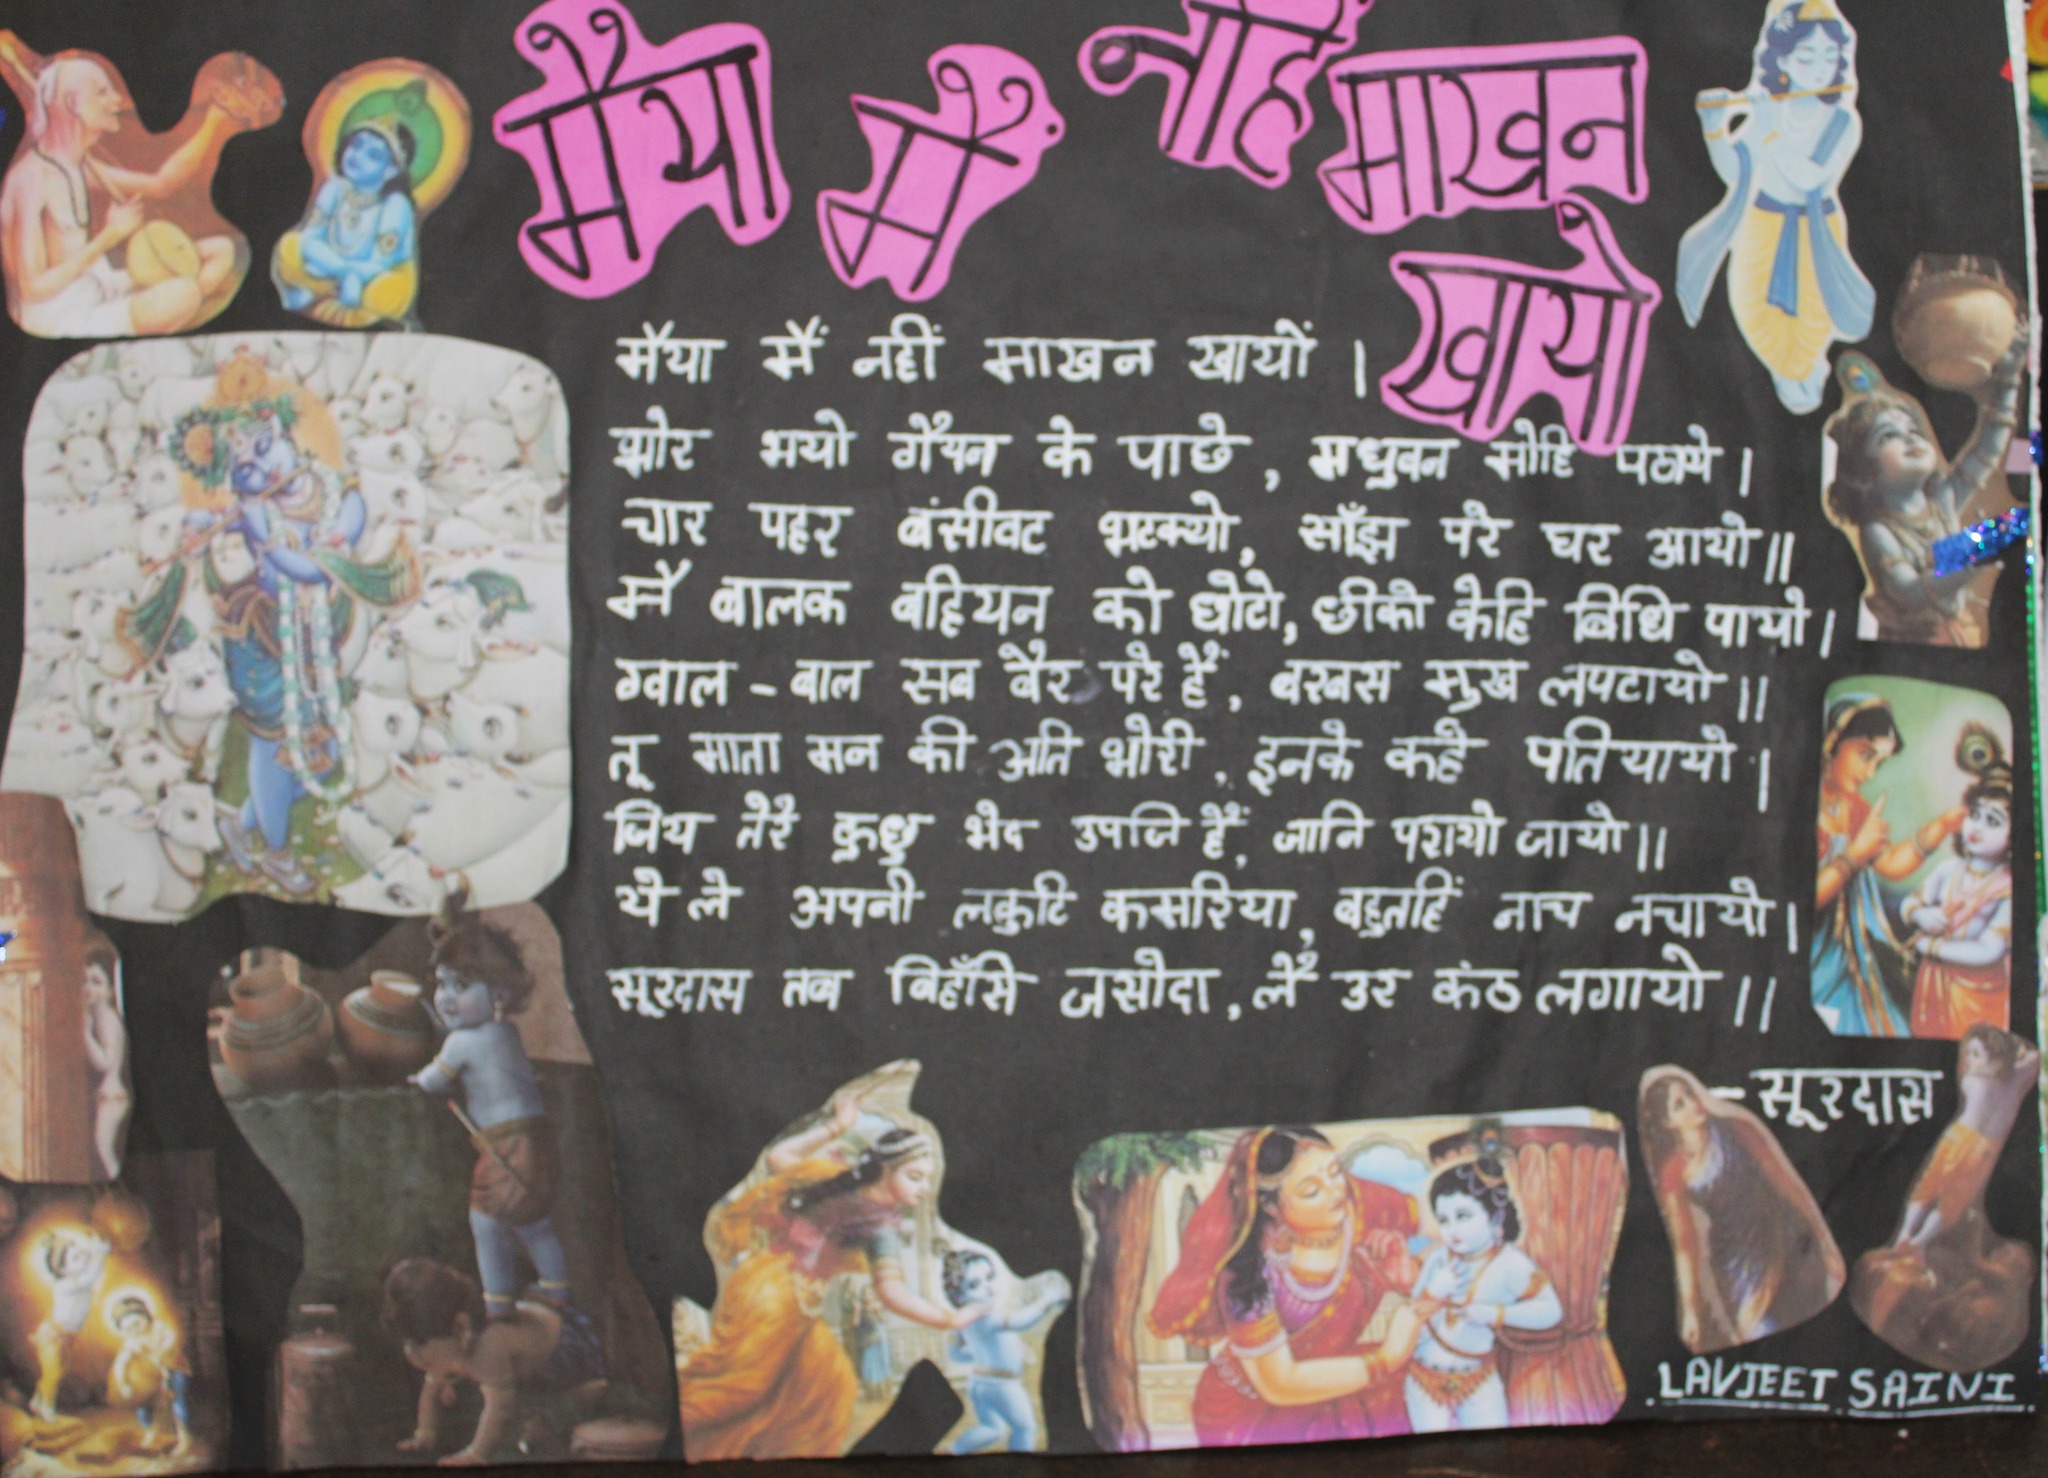 मैया मैं नहिं माखन खायो
मैया मैं नहीं माखन खायों ।
भोर भयो गैयन के पाछे, मधुबन मोहि पठाये ।
चार पहर बंसीवट भटक्यो, साँझ परे घर आयो ॥
मैं बालक बहियन को छोटो, छीको केहि बिधि पायो ।
ग्वाल - बाल सब बैर परे हैं, बरबस मुख लपटायो ॥
तू माता मन की अति भोरी, इनके कहे पतियायो ।
जिय तेरे कुछु भेद उपजि हैं, जानि परायो जायो ॥
ये ले अपनी लकुटि कमरिया, बहुतहिं नाच नचायो ।
सूरदास तब बिहँसि जसोदा, लै उर कंठ लगायो ॥
- सूरदास
LAVJEET SAINI